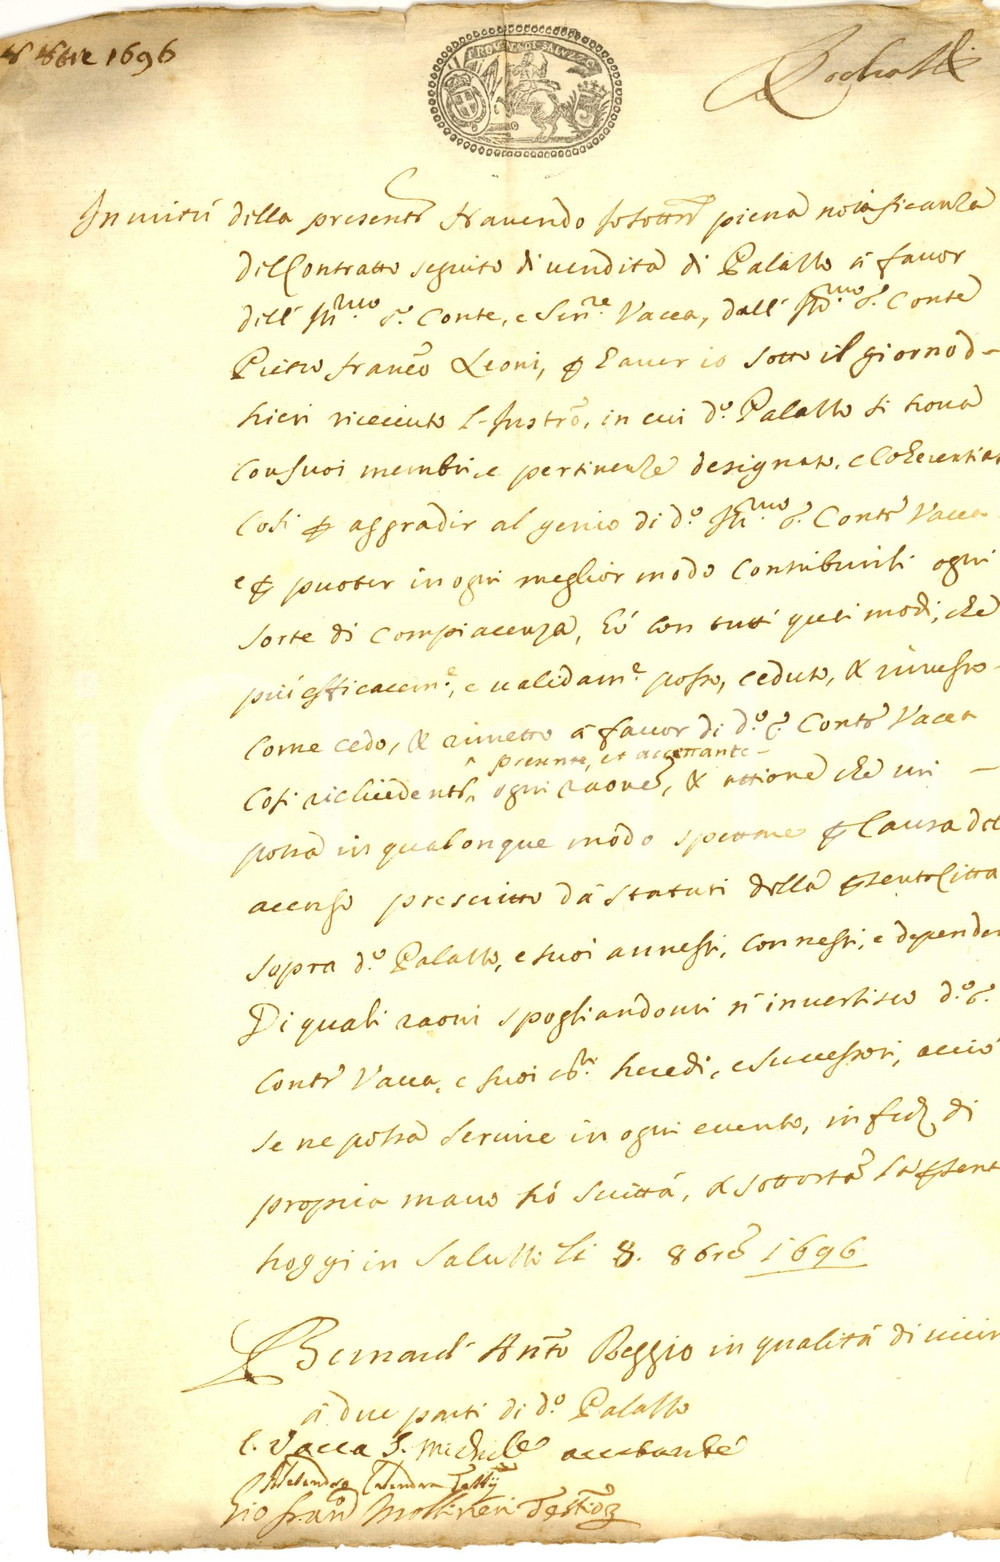 8 8bre 1696
PROVINCIA DI SALVZZO
In virtù della presente Havendo Io sottto piena notificanza
del Contratto seguito di vendita di Palasso à favor
dell' Ill.mo S.r Conte, e Sen.re Vacca, dall' Ill.mo S.r Conte
Pietro Franco Leoni, & haver io sotto il giorno d-
hieri riceuuto l'Instro, in cui d.o Palasso si troua
con suoi membri, e pertinenze designato, e Coherentiat
Cosi p aggradir al genio di d.o Ill.mo S.r Conte Vacca
e p puoter in ogni meglior modo Contribuirli ogni
sorte di Compiacenza, hò con tutti quei modi, che
più efficacem.e, e validam.e posso, ceduto, & rimesso
Come cedo, & rimetto à favor di d.o S.r Conte Vacca
presente, et accettante
Cosi richiedente, ogni raone, & attione che mi
potrà in qualonque modo spettare p Causa del
accenso prescritto da statuti della pnte Città
sopra d.o Palasso, e suoi annessi, connessi, e dependen
Di quali raoni spogliandomi n'investisco d.o S.r
Conte Vacca, e suoi heredi, e successori, acciò
se ne possa servire in ogni evento, in fede di
propria mano hò scritta, & sottoscrta la pnte
hoggi in Saluzzo li 8. 8bre 1696
Bernardo Anto Reggio in qualità di vicin
à due parti di d.o Palasso
C. Vacca S. Michele accettante
Gio Franco Mollineri Testimo